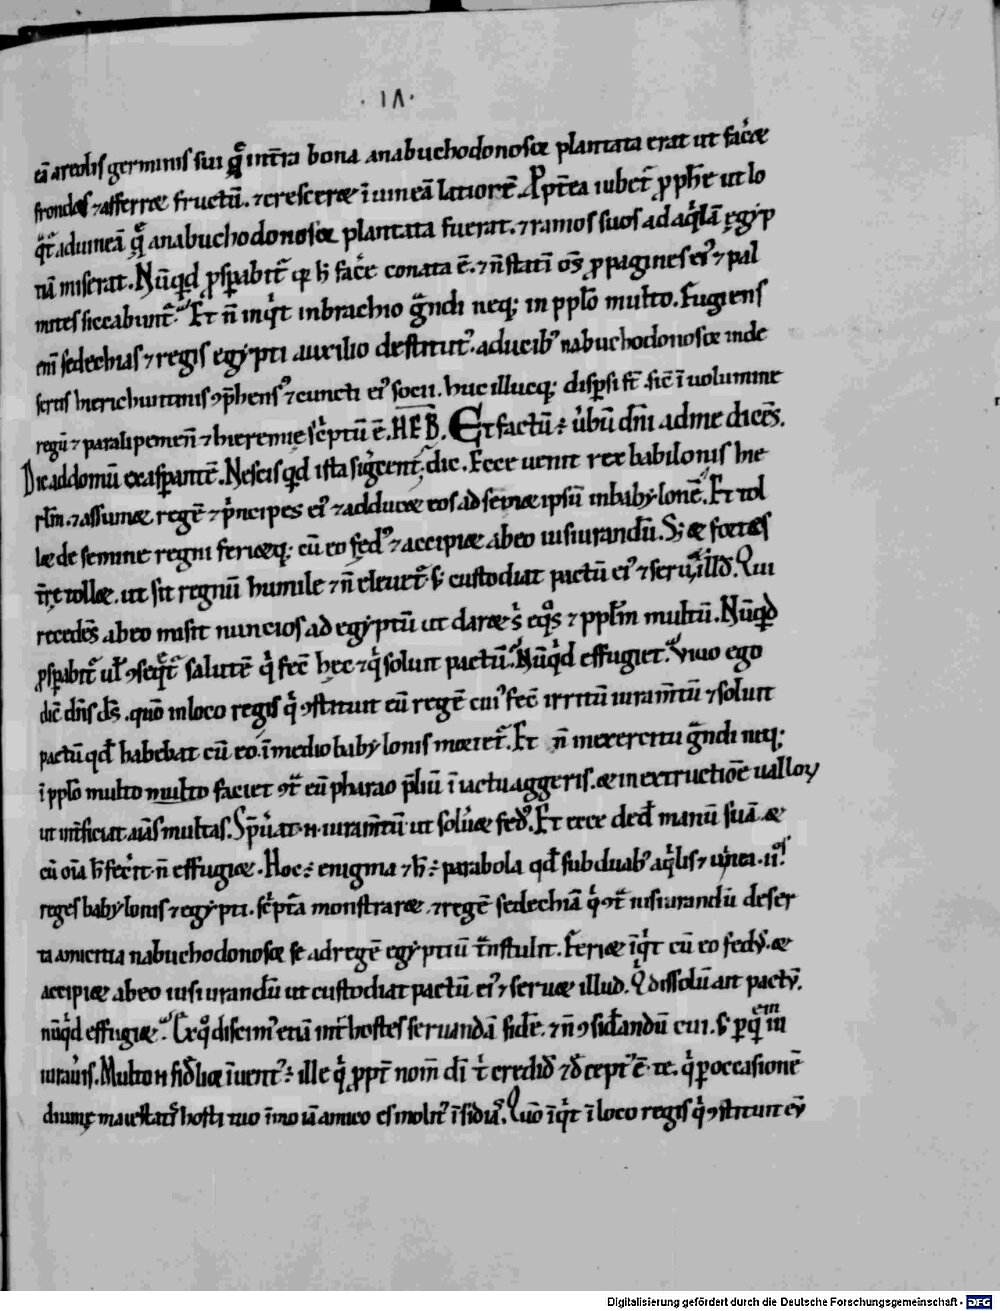 · IΛ ·
eā areolis germinis sui quę intra bona anabuchodonosor plantata erat ut facer&
frondes & afferr& fructū. & cresceret ī uineā latiorē. Ppt̄ea iubet̄ ꝓph̄e ut lo
q̄t̄ aduineā quę anabuchodonosor plantata fuerat. & ramos suos ad aq̄lā ęgyp
tiā miserat. Nūqd ꝓsꝑabit̄ q̄ h̄ face conata ē. & n̄ statī om̄s ꝓpagines ei᾽ & pal
mites siccabunt̄. Et n̄ inqt inbrachio g̃ndi neq; in pplo multo. Fugiens
eni sedechias & regis egypti auxilio destitut᾽. aducib᾽ nabuchodonosor inde
sertis hierichuntinis ꝯp̄hens᾽ & cuncti ei᾽ socii. huc illucq; disp̄si st̄. sic̄ ī uolumine
regū & paralipomen̄ & hieremię sc̄ptū ē. HEB. Et factū ÷ ūbū dn̄i adme dicēs.
Dic addomū exasperantē. Nescis qd ista significent; dic. Ecce uenit rex babilonis hie
rl̄m. & assum& regē & p̄ncipes ei᾽ & adduc& eos ad sem& ipsū inbabylonē. Et tol
l& de semine regni feri&q; cū eo fed᾽ & accipi& abeo iusiurandū. S; & fortes
tr̄ę toll&. ut sit regnū humile & n̄ eleuet̄ s; custodiat pactū ei᾽ & seru& illd. Qui
recedēs abeo misit nuncios ad egyptū ut dar& s᾽ eqs & pplm multū. Nūqd
ꝓsꝑabit̄ ul ꝯseqt̄ salutē q fec̄ hęc & q soluit pactū. Nūqd effugiet. Viuo ego
dic̄ dn̄s ds̄. quō inloco regis q ꝯstituit eū regē cui᾽ fec̄ irritū iuram̄tū & soluit
pactū qd habebat cū eo. ī medio babylonis moriet̄. Et n̄ inexercitu g̃ndi neq;
ī pplo multo multo faciet ꝯt̄ eū pharao p̄liū ī iactu aggeris. & in extructiōe ualloꝝ
ut int̄ficiat aīas multas. Spuerat .n. iuram̄tū ut solu& fed᾽. Et ecce ded manū suā. &
cū oīa h̄ fecit. n̄ effugi&. Hoc ÷ enigma & h̄ ÷ parabola qd sub duab᾽ aqlis & uinea. ii᾽
reges babylonis & egypti. sc̄pta monstrar&. & regē sedechiā q ꝯt̄ iusiurandū deser
ta amicitia nabuchodonosor se ad regē egyptiū t̄nstulit. Feri& īqt cū eo fed᾽. &
accipi& abeo iusiurandū ut custodiat pactū ei᾽ & seru& illud. Q dissoluant pactū.
nūqd effugi&. Ex quo discim᾽ etiā int̄ hostes seruandā fidē. & n̄ ꝯsidandū cui. s; ꝑ quem
iurauis. Multo .n. fidelior īuent᾽ ÷ ille q ppt̄ nom̄ di t̄ credid & decept᾽ ē. te. q ꝑ occasionē
diuinę maiestatis hosti tuo īmo iā amico es molit᾽ īsidias. Quō īqt ī loco regis q ꝯstituit eū